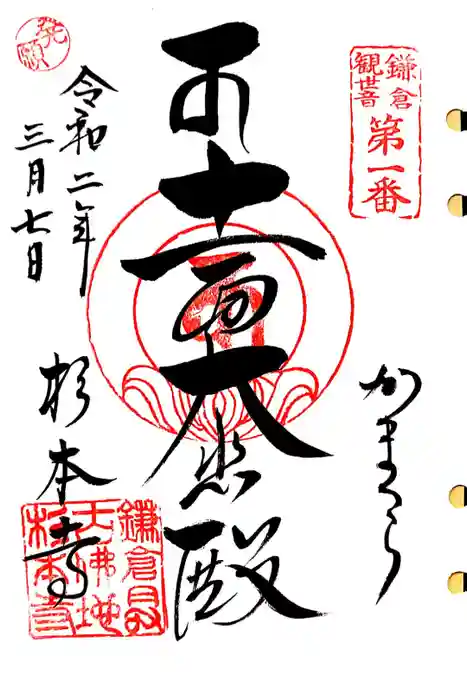 鎌倉
観世音
第一番
かまくら
十一面大悲殿
発願
令和二年
三月七日
杉本寺
鎌倉
杉本寺